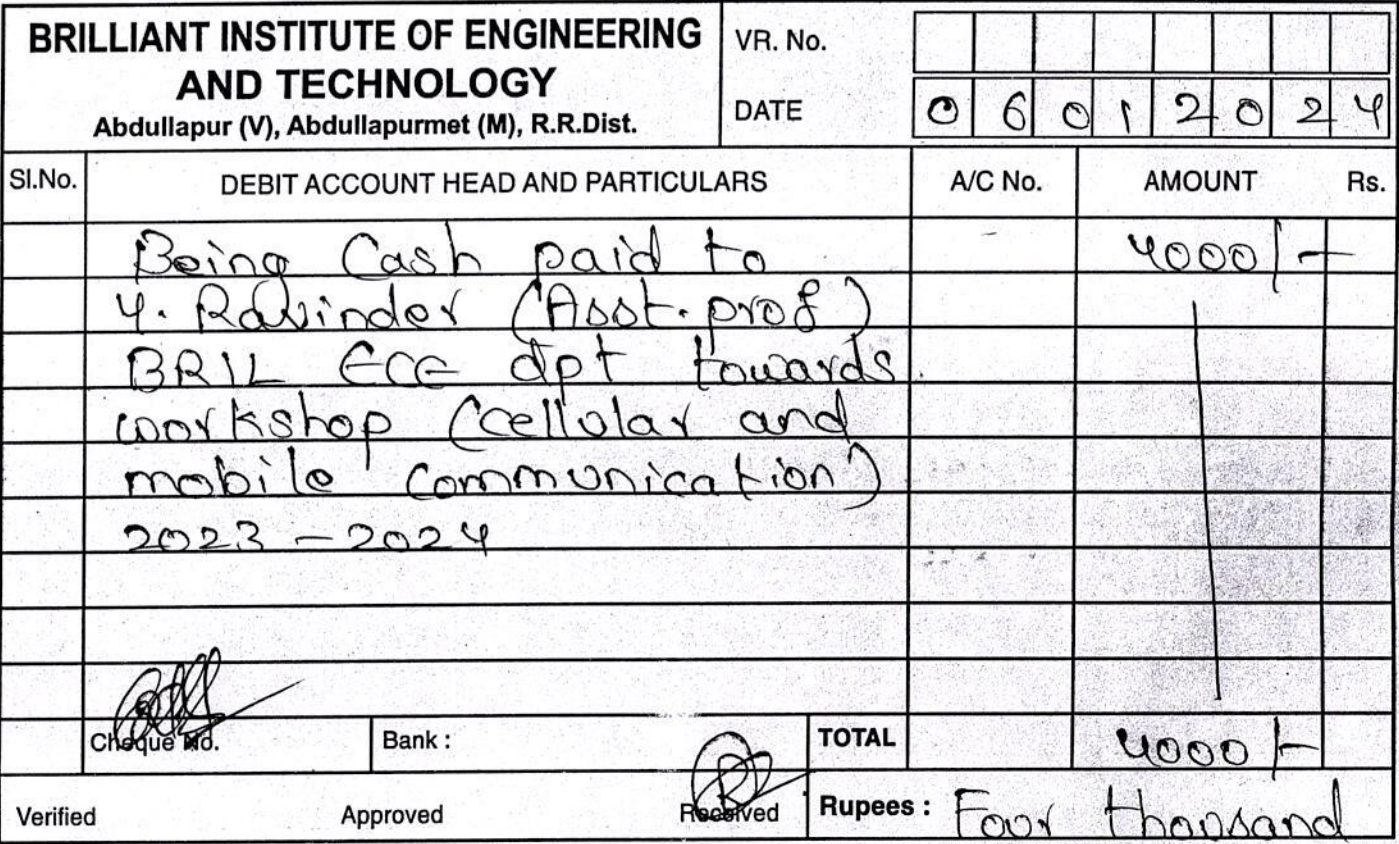 BRILLIANT INSTITUTE OF ENGINEERING
AND TECHNOLOGY
Abdullapur (V), Abdullapurmet (M), R.R.Dist.
VR. No.
DATE 06012024
Sl.No. DEBIT ACCOUNT HEAD AND PARTICULARS A/C No. AMOUNT Rs.
Being Cash paid to 4000/-
Y. Ravinder (Asst. prof)
BRIL ECE dpt towards
workshop (cellular and
mobile communication)
2023 - 2024
Cheque No. Bank : TOTAL 4000/-
Verified Approved Received Rupees : Four thousand